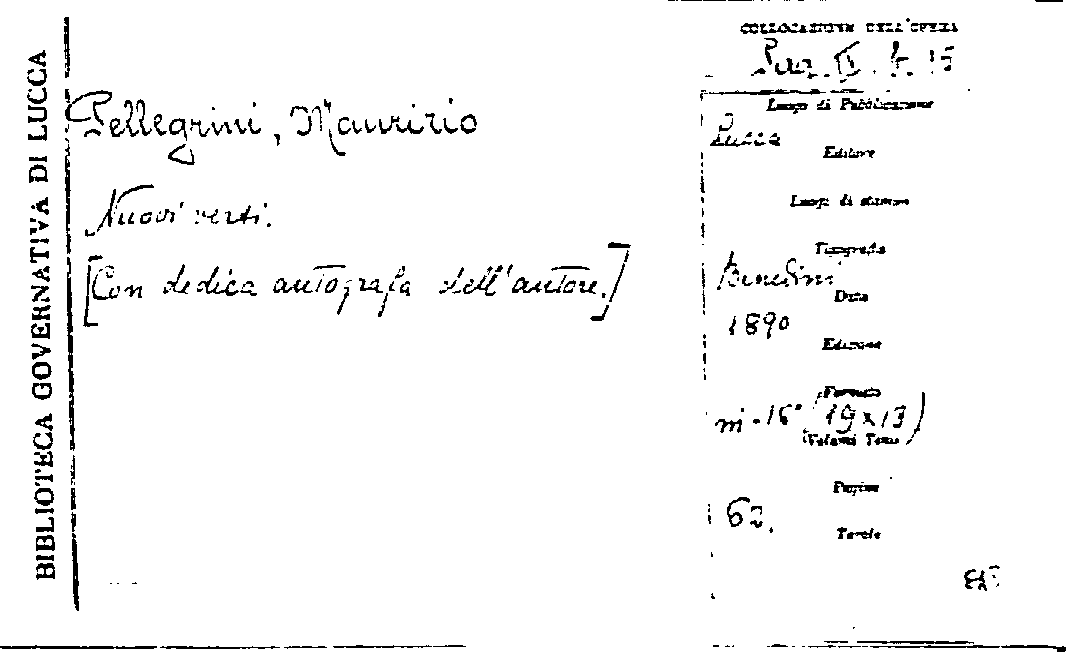 BIBLIOTECA GOVERNATIVA DI LUCCA
Pellegrini, Maurizio
Nuovi versi.
[Con dedica autografa dell'autore.]
COLLOCAZIONE DELL'OPERA
II. 15
Luogo di Pubblicazione
Lucca
Editore
Luogo di stampa
Tipografia
Benedini
Data
1890
Edizione
Formato
m-16° (19x13)
Volumi Tomi
Pagine
62.
Tavole